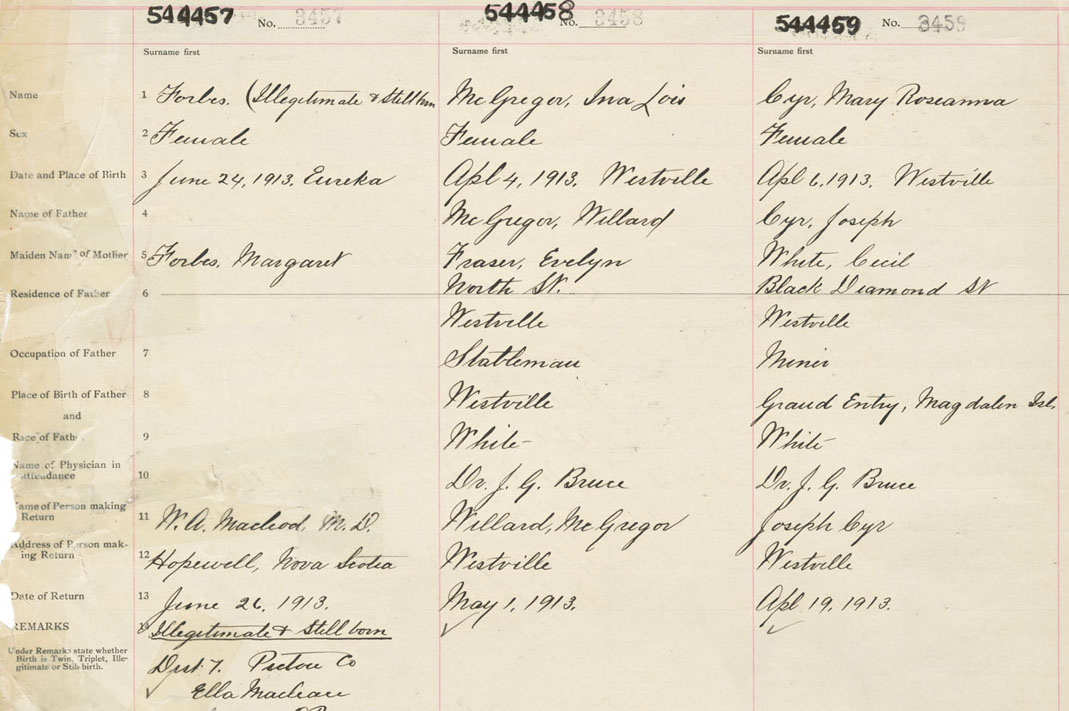 544457 No. 3457 544458 No. 3458 544459 No. 3459
Surname first Surname first Surname first
Name 1 Forbes. (Illegitimate & Stillborn McGregor, Ina Lois Cyr, Mary Roseanna
Sex 2 Female Female Female
Date and Place of Birth 3 June 24, 1913. Eureka Apl 4, 1913. Westville Apl 6, 1913. Westville
Name of Father 4 McGregor, Willard Cyr, Joseph
Maiden Name of Mother 5 Forbes, Margaret Fraser, Evelyn White, Cecil
Residence of Father 6 North St. Black Diamond St
Westville Westville
Occupation of Father 7 Stableman Miner
Place of Birth of Father 8 Westville Grand Entry, Magdalen Isl.
and
Race of Father 9 White White
Name of Physician in
attendance 10 Dr. J. G. Bruce Dr. J. G. Bruce
Name of Person making
Return 11 W. A. Macleod, M.D. Willard, McGregor Joseph Cyr
Address of Person mak-
ing Return 12 Hopewell, Nova Scotia Westville Westville
Date of Return 13 June 26, 1913. May 1, 1913. Apl 19, 1913.
REMARKS 14 Illegitimate & Still born
Under Remarks state whether
Birth is Twin, Triplet, Ille-
gitimate or Still-birth.
Dist. 7. Pictou Co
Ella Maclean